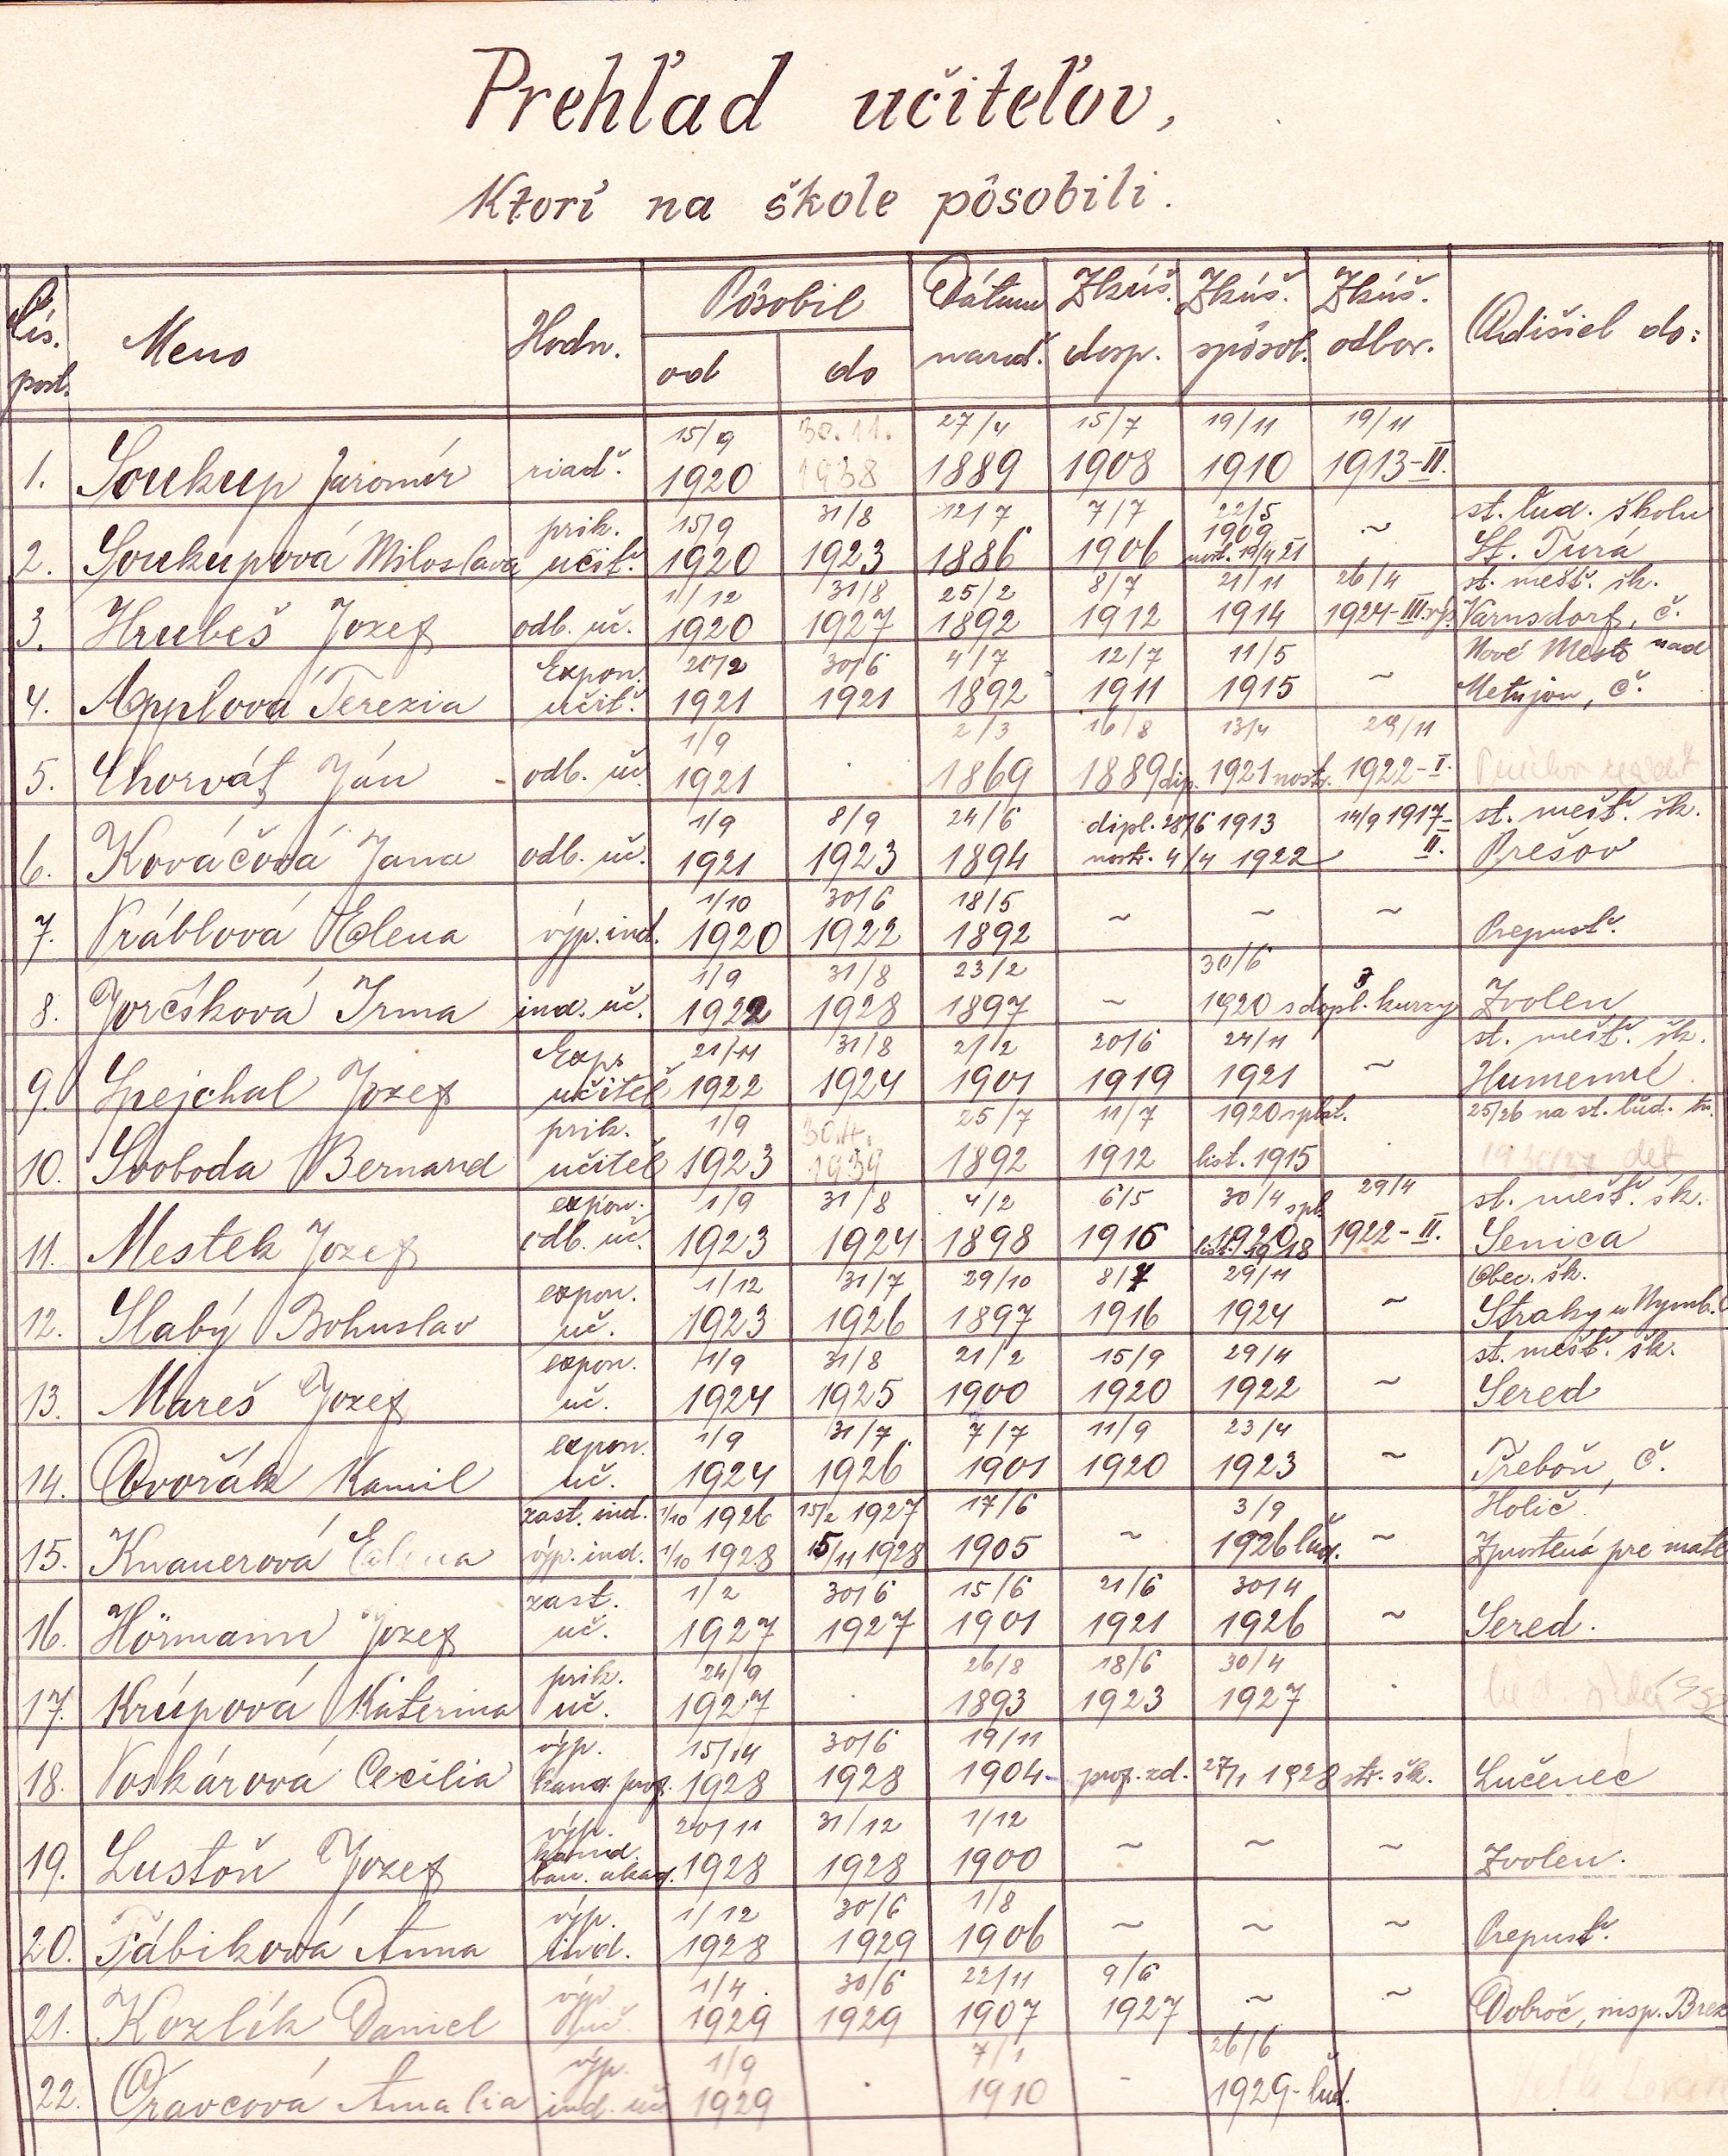 Prehľad učiteľov,
Ktorí na škole pôsobili.
Čís. post. Meno Hodn. Pôsobil od do Dátum narod. Zkúš. dosp. Zkúš. spôsob. Zkúš. odbor. Odišiel do:
1. Soukup Jaromír riad. 15/9 1920 30.11. 1938 27/4 1889 15/7 1908 19/11 1910 19/11 1913-II.
2. Soukupová Miloslava prik. učit. 15/9 1920 31/8 1923 12/7 1886 7/7 1906 22/5 1909 nostr. 21 ~ st. ľud. školu St. Turá
3. Hrubeš Jozef odb. uč. 1/12 1920 31/8 1927 25/2 1892 8/7 1912 21/11 1914 26/4 1924-III. st. mešť. šk. Varnsdorf, č.
4. Applová Terezia Expon. učit. 20/2 1921 30/6 1921 4/7 1892 12/7 1911 11/5 1915 ~ Nové Mesto nad Metujou, č.
5. Chorvát Ján odb. uč. 1/9 1921 2/3 1869 16/8 1889 dip. 13/4 1921 nostr. 29/11 1922-I.
6. Kováčová Jana odb. uč. 1/9 1921 8/9 1923 24/6 1894 dipl. 28/6 1913 nostr. 4/4 1922 14/9 1917-II. st. mešť. šk. Prešov
7. Vráblová Elena výp. ind. 1/10 1920 30/6 1922 18/5 1892 ~ ~ ~ Prepusť.
8. Jorčíková Irma ind. uč. 1/9 1922 31/8 1928 23/2 1897 ~ 30/6 1920 s dopl. kurzy Zvolen
9. Spejchal Jozef Exp. učiteľ 21/11 1922 31/8 1924 21/2 1901 20/6 1919 24/11 1921 ~ st. mešť. šk. Humenné
10. Svoboda Bernard prik. učiteľ 1/9 1923 1939 25/7 1892 11/7 1912 1920 spôs. list. 1915 25/26 na st. ľud.
11. Mestek Jozef expon. odb. uč. 1/9 1923 31/8 1924 4/2 1898 6/5 1916 30/4 1920 1918 29/4 1922-II. st. mešť. šk. Senica
12. Slabý Bohuslav expon. uč. 1/12 1923 31/7 1926 29/10 1897 8/7 1916 29/11 1924 ~ Obec. šk. Straky u Nymb.
13. Mareš Jozef expon. uč. 1/9 1924 31/8 1925 21/2 1900 15/9 1920 29/4 1922 ~ st. mešť. šk. Sered
14. Dvořák Kamil expon. uč. 1/9 1924 31/7 1926 7/7 1901 11/9 1920 23/4 1923 ~ Třeboň, č.
15. Knauerová Elena zast. ind. výp. ind. 1/10 1926 1/10 1928 15/2 1927 15/11 1928 17/6 1905 ~ 3/9 1926 ľud. ~ Holič Zprostená pre mate
16. Hörmann Jozef zast. uč. 1/2 1927 30/6 1927 15/6 1901 21/6 1921 30/4 1926 ~ Sered.
17. Krúpová Katerina prik. uč. 24/9 1927 26/8 1893 18/6 1923 30/4 1927
18. Voskárová Cecilia výp. kand. prof. 15/14 1928 30/6 1928 19/11 1904 prof. zd. 27/1 1928 str. šk. Lučenec
19. Lustoň Jozef výp. kand. ban. akad. 20/11 1928 31/12 1928 1/12 1900 ~ ~ ~ Zvolen.
20. Fábiková Anna výp. ind. 1/12 1928 30/6 1929 1/8 1906 ~ ~ ~ Prepusť.
21. Kozlík Daniel výp. uč. 1/4 1929 30/6 1929 22/11 1907 9/6 1927 ~ ~ Dobroč, insp. Brez
22. Oravcová Amalia výp. ind. uč. 1/9 1929 7/1 1910 - 26/6 1929-ľud.